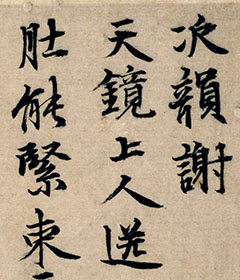 次韻謝
天鏡上人送
肚能緊束